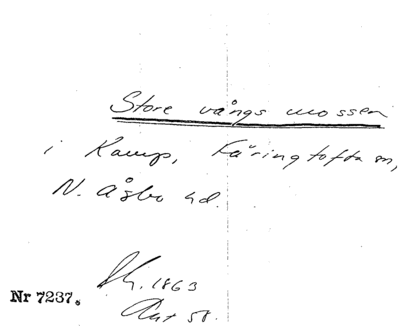 Store vångs mossen
i Kamp, Färingtofta sn,
N. Åsbo hd.
Sk. 1863
Nr 7237.
Akt 58.